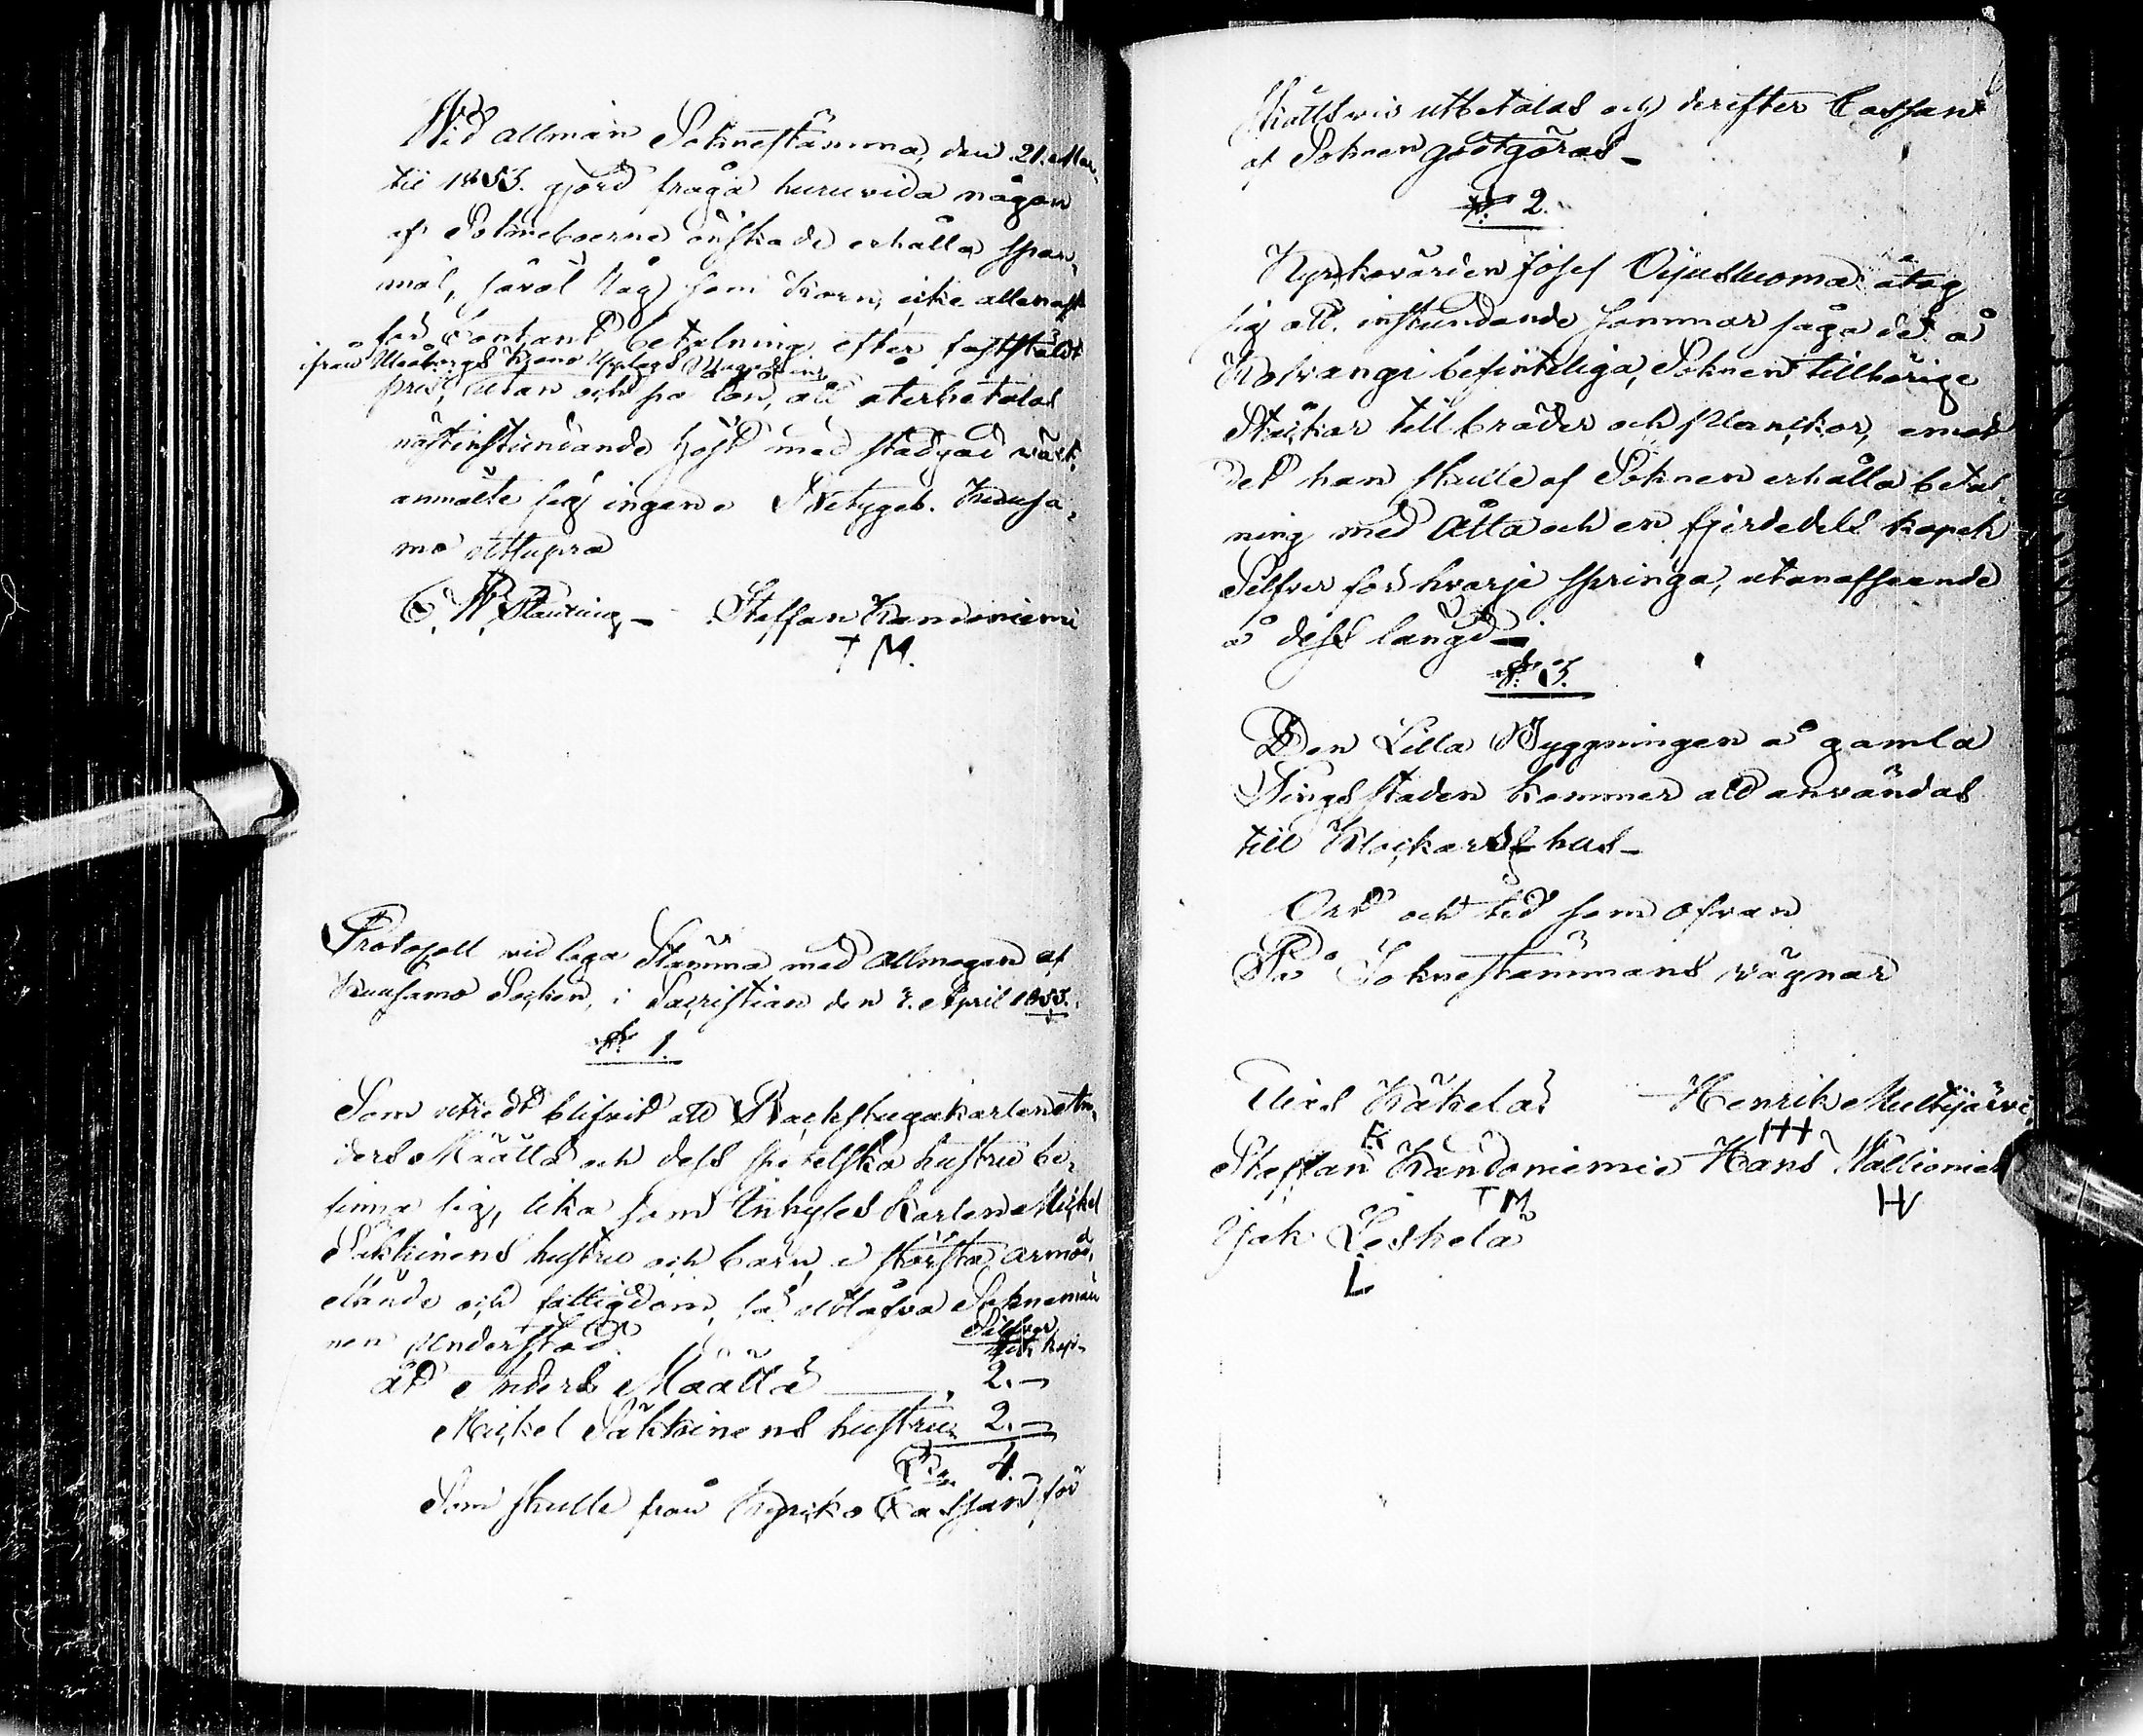 Wid allmän Soknestämma, den 21. Mar,
tii 1853. gjord fråga huruvida någon
af Sokneboerne önskade erhålla span,
mål, såväl Råg som Korn, icke allenast
för Contant betalning efter fastställdt
ifrån Uleåborgs Krono Upplags Magasin
pris, utan och på lån, att återbetalas
nästinstundande höst med stadgad växt,
anmälte sig ingen. Betygab. Kuusa,
mo ut supra
Staffan Kandoniemi
T M.
Protocoll vid laga Stämma med Allmogen af
Kuusamo Socken, i Sacristian den 3. April 1853.
§. 1.
Som utredt blifvit att Backstugukarlen An,
ders Määttä och dess spetelska hustru be,
finna sig, lika som Inhyses Karlen Mickel
Säkkinens hustru och barn, i största armod,
elände och fattigdom, så utlofva Soknemän
nen Understöd. Silfver
Rub. Kop.
åt Anders Määttä 2. —
Mickel Säkkinens hustru 2. —
4.
Som skulle från Kyrko Cassan för
skottsvis utbetalas och derefter Cassan
af Soknen godtgöras —
§. 2.
Kyrkovärden Josef Oijusluoma åtog
sig att instundande sommar såga de å
Kolvangi befinteliga, Soknen tillhörige
Stockar till bräder och plankor, emot
det han skulle af Soknen erhålla betal,
ning med Åtta och en fjerdedels kopek
Silfver för hvarje springa, utanafseende
å dess längd —
§. 3.
Den Lilla Byggningen å gamla
Tingsstaden kommer att användas
till Klockars hus —
Ort och tid som ofvan
På Soknestämmans vägnar
Elias Käkelä Henrik Multijärvi
K HH
Staffan Kandoniemi Hans Wallioniemi
T M H
Isak Leskelä
L